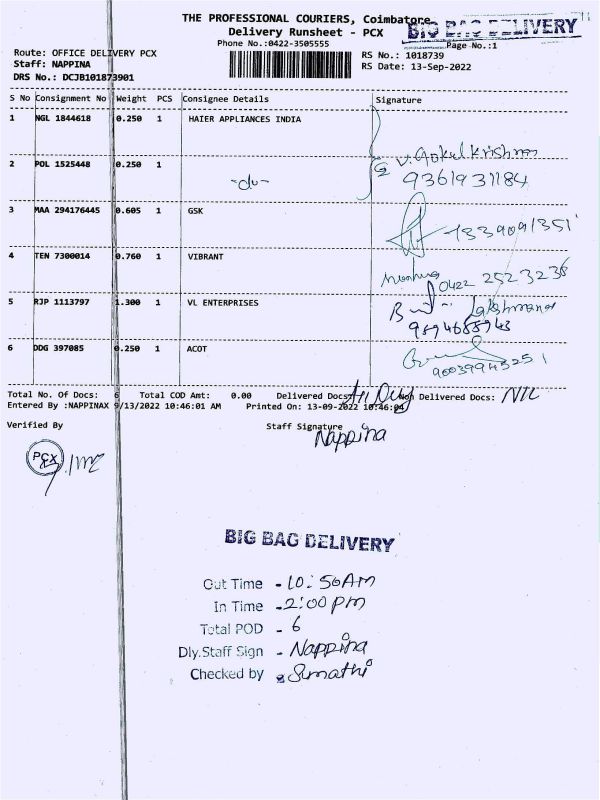 THE PROFESSIONAL COURIERS, Coimbatore
BIG BAG DELIVERY
Delivery Runsheet - PCX
Phone No.:0422-3505555
Page No.:1
Route: OFFICE DELIVERY PCX
RS No.: 1018739
Staff: NAPPINA
RS Date: 13-Sep-2022
DRS No.: DCJB101873901
S No Consignment No Weight PCS Consignee Details Signature
1 NGL 1844618 0.250 1 HAIER APPLIANCES INDIA
V. Gokul Krishnan
2 POL 1525448 0.250 1 -do- 9361931184
3 MAA 294176445 0.605 1 GSK
4 TEN 7300014 0.760 1 VIBRANT 0422 2523236
5 RJP 1113797 1.300 1 VL ENTERPRISES Lakshmanan
6 DDG 397085 0.250 1 ACOT 9003994325 1
Total No. Of Docs: 6 Total COD Amt: 0.00 Delivered Docs: All Dely Non Delivered Docs: NIL
Entered By :NAPPINAX 9/13/2022 10:46:01 AM Printed On: 13-09-2022 10:46:04
Verified By Staff Signature
Nappina
PCX
BIG BAG DELIVERY
Out Time - 10:50AM
In Time - 2:00 pm
Total POD - 6
Dly.Staff Sign - Nappina
Checked by Sumathi